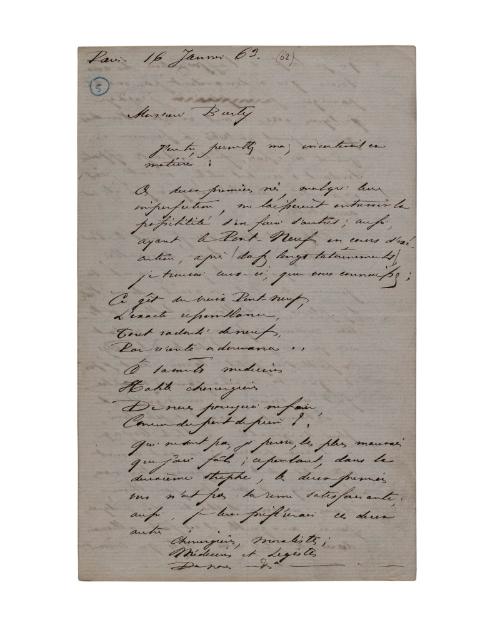 Paris 16 Janvier 63. (62)
5
Monsieur Burty
permettez moi, en
matière :
O deux premiers nés, malgré leur
imperfection, me laissèrent entrevoir la
possibilité d'en faire d'autres ; aussi
ayant le Pont Neuf en cours d'exé
cution, après d'assez longs tatonnements,
je trouvai ceux ci, que vous connaissez ;
Ci gît du vieux Pont neuf,
L'exacte ressemblance,
Tout radoubé de neuf,
Par récente ordonnance . .
O savants médecins
Habiles chirurgiens
De nous pourquoi ne faire
Comme du pont de pierre ?.
qui ne sont pas, je pense, les plus mauvais
que j'aie faits ; cependant, dans la
deuxième strophe, les deux premiers
vers n'ont pas la rime satisfaisante,
aussi, je leur préférerais ces deux
autres
Chirurgiens, moralistes ;
Médecins et Légistes
De nous